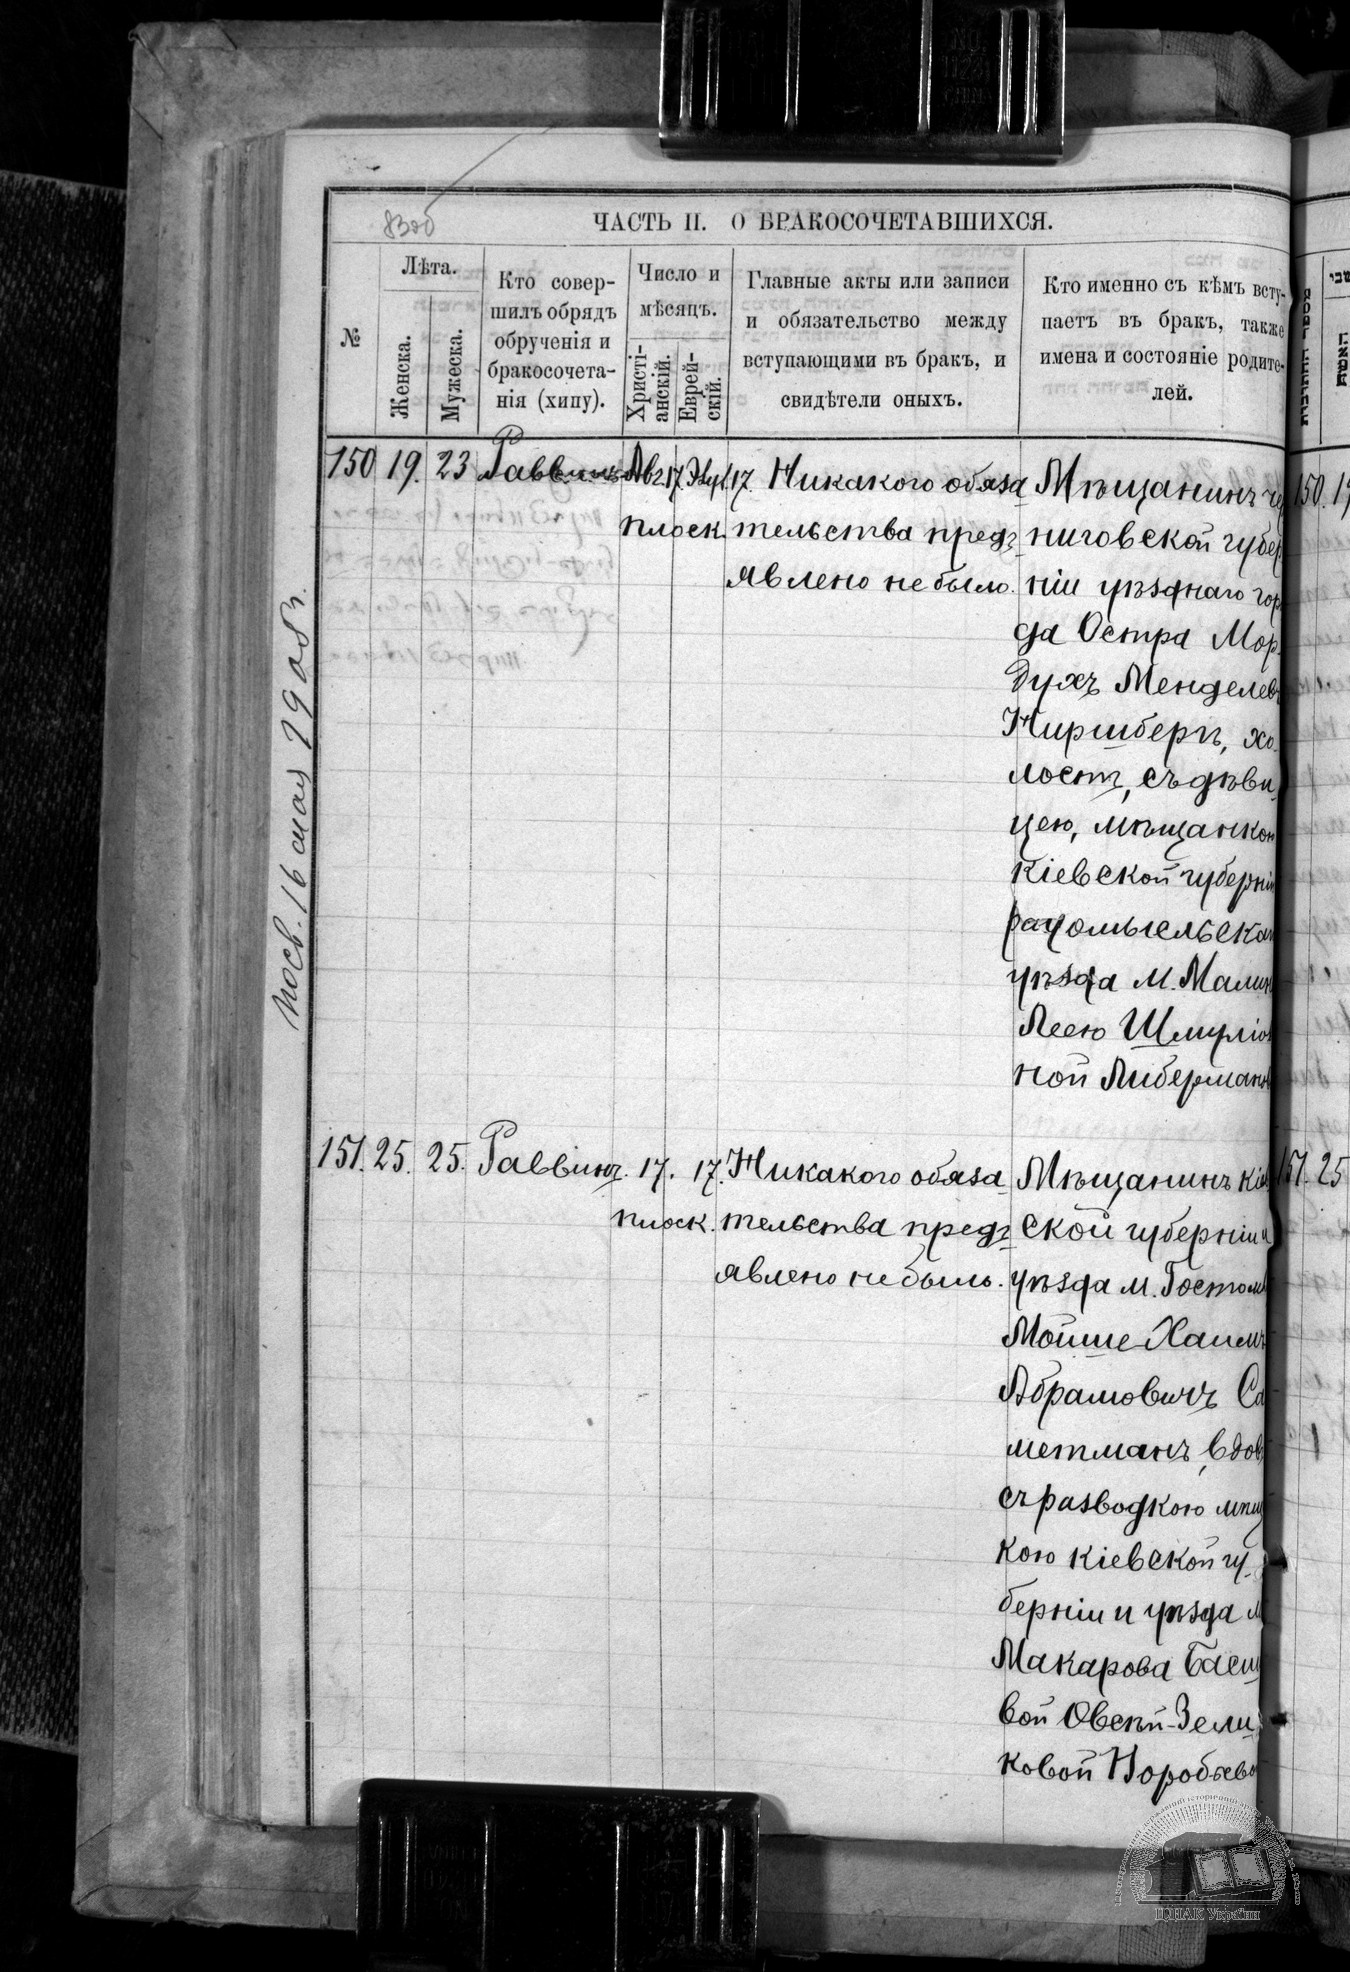 ЧАСТЬ II. О БРАКОСОЧЕТАВШИХСЯ.
№
Лѣта.
Женска.
Мужеска.
Кто совер-
шилъ обрядъ
обрученія и
бракосочета-
нія (хипу).
Число и
мѣсяцъ.
Христі-
анскій.
Еврей-
скій.
Главные акты или записи
и обязательство между
вступающими въ бракъ, и
свидѣтели оныхъ.
Кто именно съ кѣмъ всту-
паетъ въ бракъ, также
имена и состояніе родите-
лей.
150 19. 23 Раввинъ Авг. 17. Элул. 17.
плоск.
Никакого обяза
тельства предъ
явлено не было.
Мѣщанинъ че
ниговской губер
ніи уѣзднаго гор
да Остра Мор-
духъ Менделев
Киршберъ, хо-
лостъ, съ дѣви-
цею, мѣщанкою
Кіевской губерніи
радомысльскаго
уѣзда м. Малин
Леею Шмуліов
ной Либерман
151. 25. 25. Раввинъ. 17. 17.
плоск.
Никакого обяза-
тельства предъ
явлено не былъ.
Мѣщанинъ Кіев
ской губерніи и
уѣзда м. Гостомл
Мойше-Хаимъ
Абрамовичъ Са
метманъ, вдов
съ разводкою мѣщ
кою Кіевской гу-
берніи и уѣзда м
Макарова Басш
вой Овсѣй-Зели-
ковой Воробьево
150. 19
151. 25
ЦДІАК України